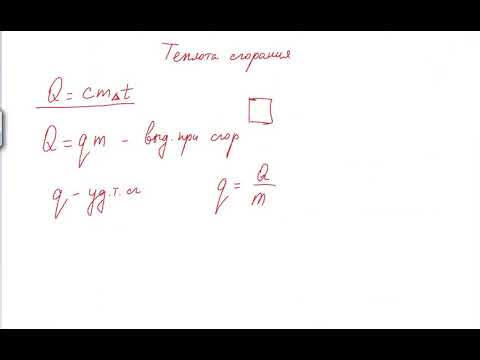 Теплота сгорания
Q = cm∆t
Q = qm - выд. при сгор
q - уд. т. сг
q = Q/m